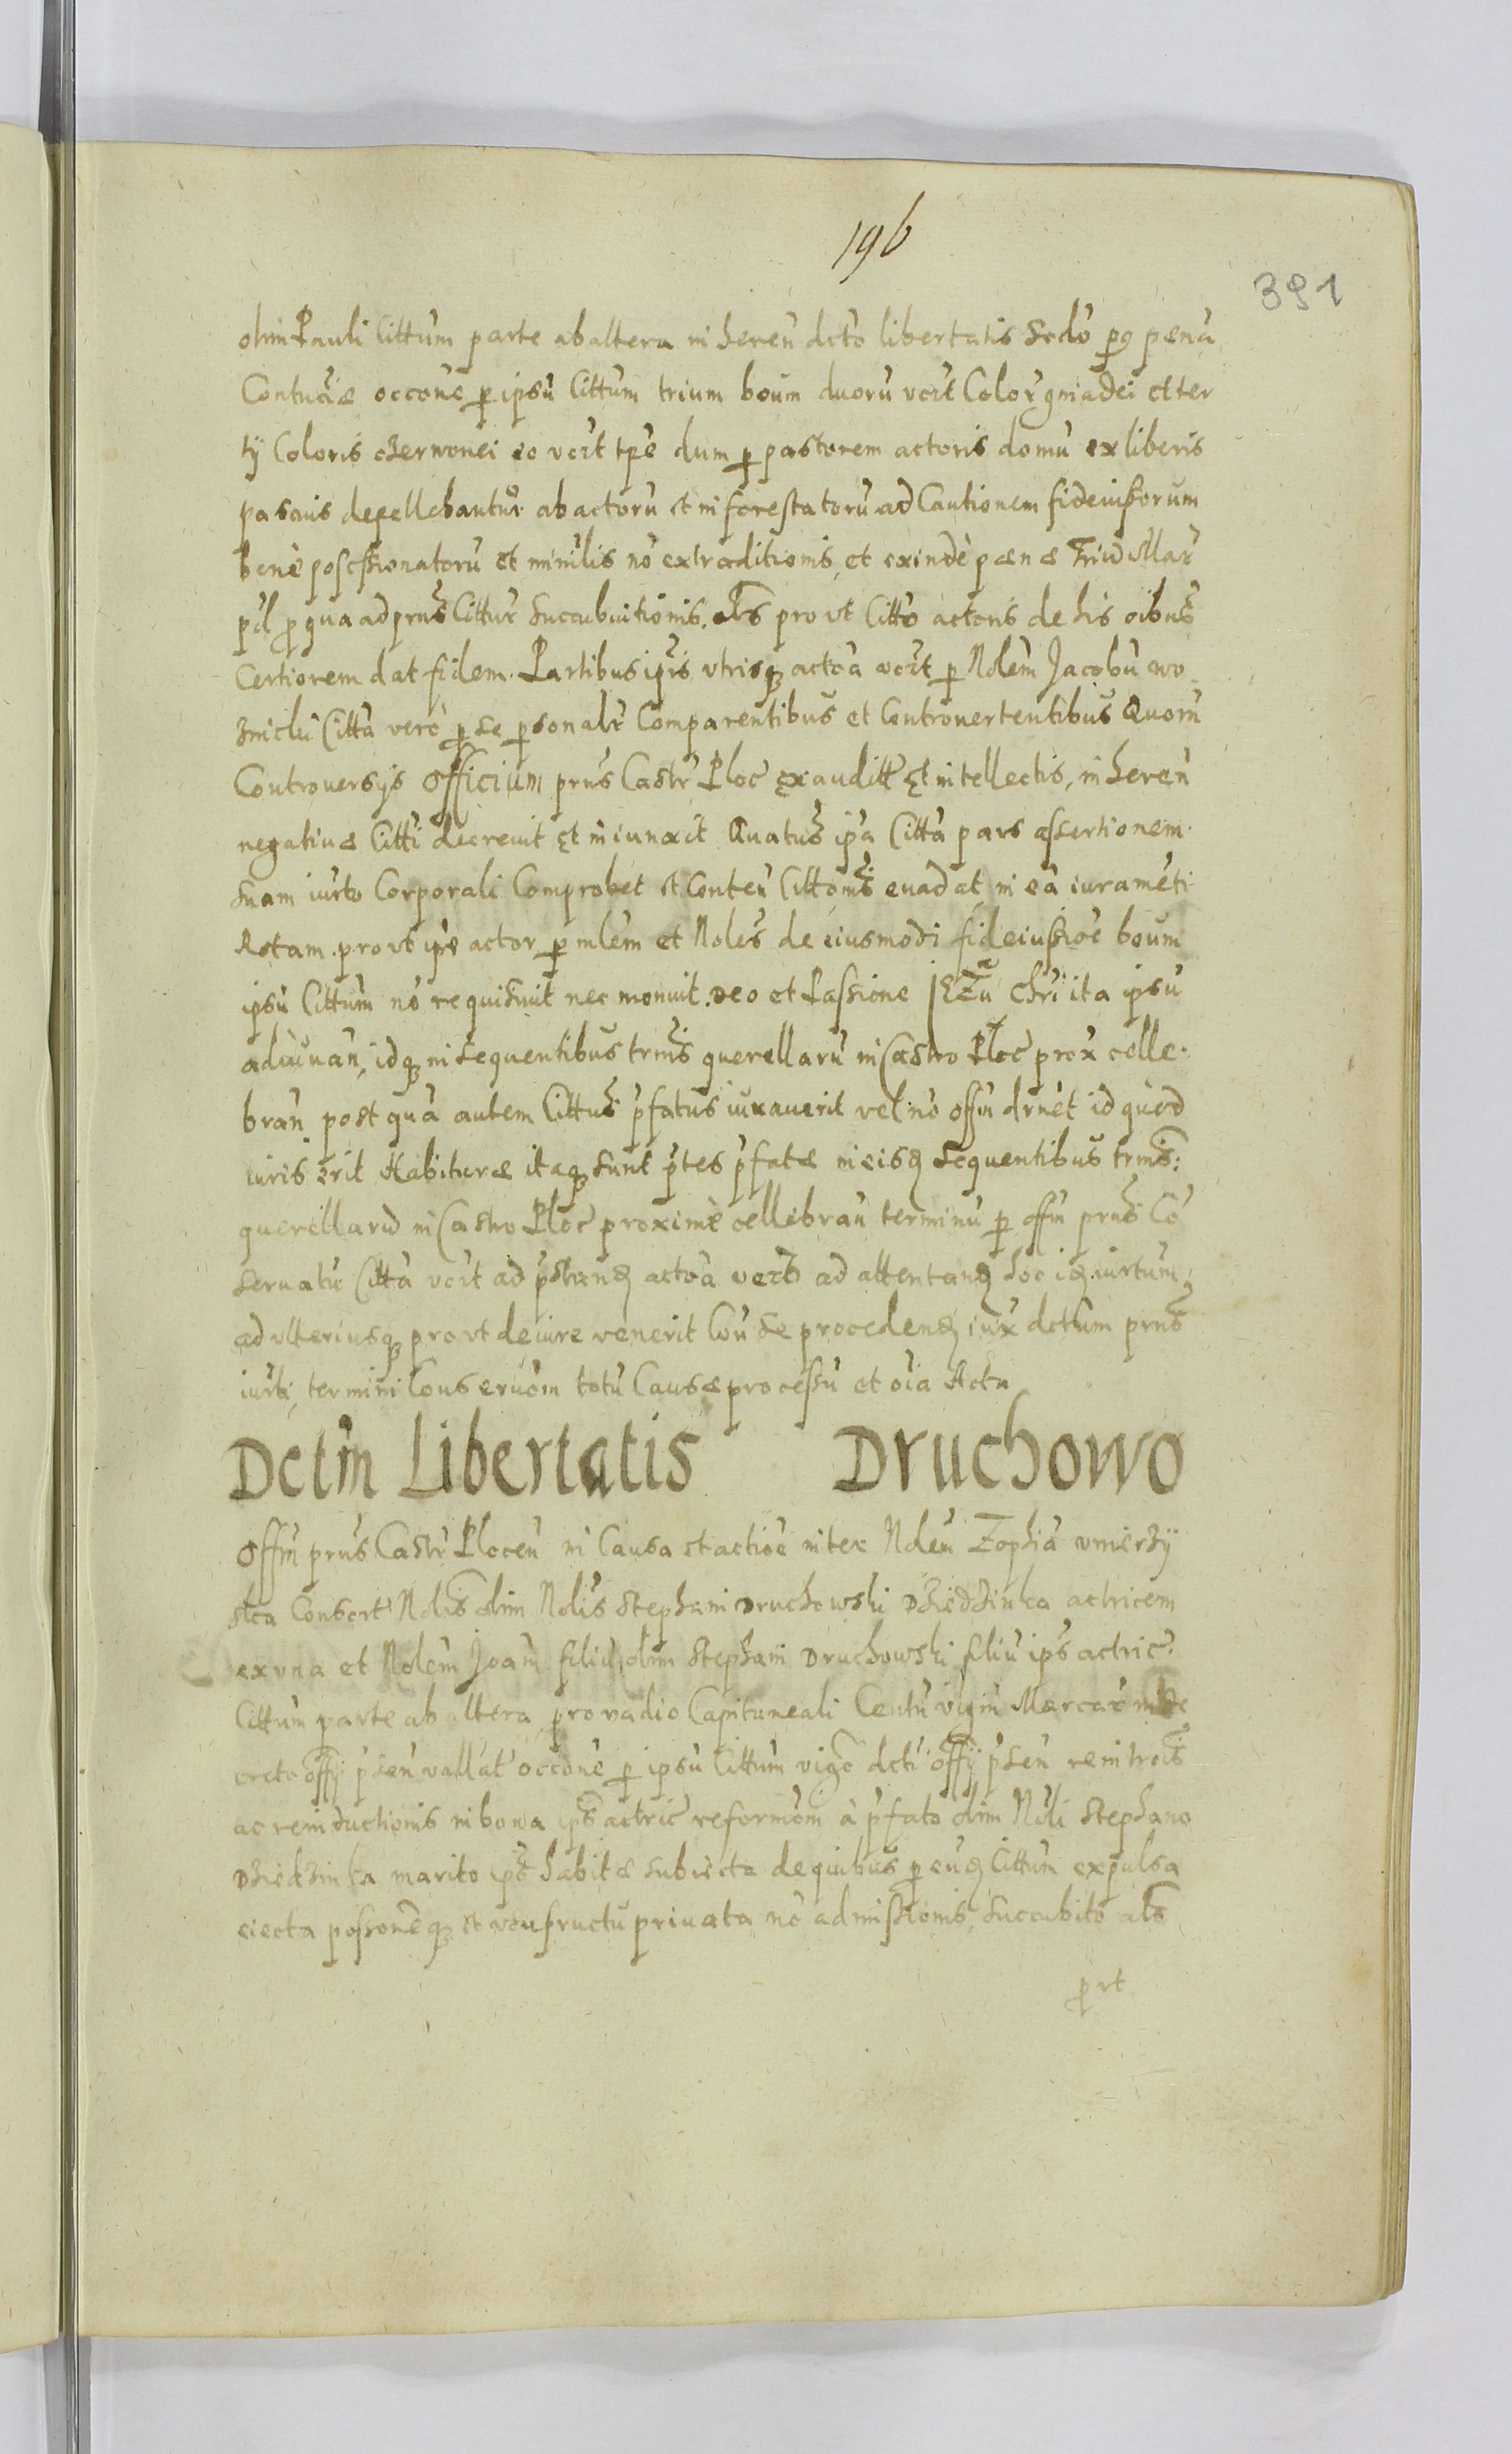 196
391
olim Pauli Cittum parte ab altera in heren dcto libertatis Scdo pro pena
Contuciæ occone p ipsu Cittum trium boum duoru vczt Color gniadei et ter
tÿ Coloris czerwonei eo vczt tpe dum p pastorem actoris domu ex liberis
pascuis depellebantur abactoru et in foresta toru ad Cautionem fideiussorum
benè possessionatoru et minilis no extraditionis et exindè pænæ Triū Mar
pd pro qua ad prns Cittur Succubuitionis. als pro vt Citto actoris de his oibus
Certiorem dat fidem. Partibus ipis vtrisq actora vczt p Nolem Jacobu wo
znicki Citta verò p se psonalr Comparentibus et Controuertentibus Quoru
Controuersÿs Officium prns Castr Ploc exauditt Et intellectis, in heren
negatiuæ Citti decreuit Et iniunxit Quatus ipa Citta pars assertionem
suam iurto Corporali Comprobet et Conten Cittonis euadat in ea iurameti
Rotam. pro vt ipe actor p mlem et Noles de eiusmodi fideiussioe boum
ipsu Cittum no requisiuit nec monuit. Deo et Passione JEZu Chri ita ipsu
adiuuan, idq in sequentibus trmis querellaru in Castro Ploc prox celle
bran post qua autem Cittus pfatus iurauerit vel no offm drnet id quod
iuris erit Habituræ itaq sunt ptes pfatæ in eisd Sequentibus trmis
querellaru in Castro Ploc proximè cellebran terminu p offm prns Co
seruatu Citta vczt ad pstand actora verò ad attentand hoc id iurtum
ad vlteriusq pro vt de iure venerit Cou se procedend iux dctum prns
iurti, termini Conseruom totu Causæ processu et oia Acta
Dctm Libertatis Druchowo
Offm prns Castr Plocen in Causa et actioe inter Ndem Zophia vmierzÿ
ska Consort Nolis olim Nolis Stephani Druchowski Dziedzinka actricem
ex vna et Nolem Joam filiu olim Stephani Druchowski filiu ips actric
Cittum parte ab altera pro vadio Capitaneali Centu vigin Marcar in de
creto offÿ psen vallat occone p ipsu Cittum vigo dcti offÿ psen reintrois
ac reinductionis in bona ips actric reformom à pfato olim Noli Stephano
Dziedzinka marito ips habitæ subiecta de quibus p eud Cittum expulsa
eiecta possoneq et vsufructu priuata no admissionis Succubito als
prt